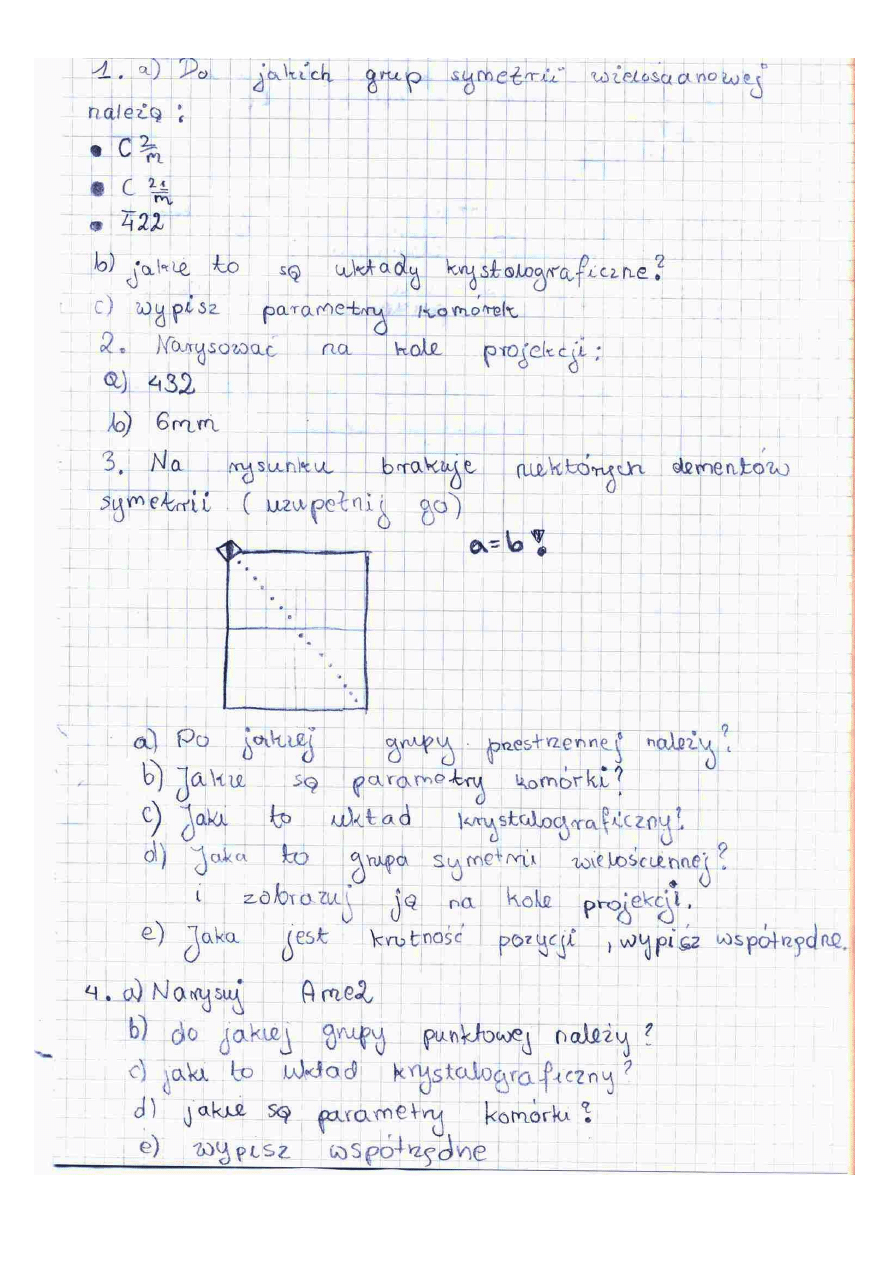 1. a) Do jakich grup symetrii wielościanowej
należą :
• C 2/m
• C 21/m
• 4̅22
b) jakie to są układy krystalograficzne?
c) wypisz parametry komórek
2. Narysować na kole projekcji :
a) 432
b) 6mm
3. Na rysunku brakuje niektórych elementów
symetrii ( uzupełnij go)
a=b !
a) Do jakiej grupy przestrzennej należy?
b) Jakie są parametry komórki?
c) Jaki to układ krystalograficzny?
d) Jaka to grupa symetrii wielościennej?
i zobrazuj ją na kole projekcji.
e) Jaka jest krotność pozycji , wypisz współrzędne.
4. a) Narysuj Ame2
b) do jakiej grupy punktowej należy ?
c) jaki to układ krystalograficzny ?
d) jakie są parametry komórki ?
e) wypisz współrzędne